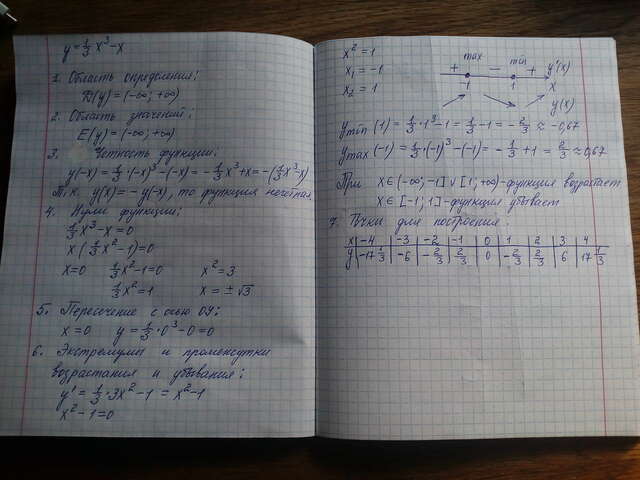 y=1/3 x³-x
1. Область определения:
D(y)=(-∞; +∞)
2. Область значений:
E(y)=(-∞; +∞)
3. Четность функции:
y(-x)=1/3·(-x)³-(-x)=-1/3x³+x=-(1/3x³-x)
Т.к. y(x)=-y(-x), то функция нечётная.
4. Нули функции:
1/3x³-x=0
x(1/3x²-1)=0
x=0 1/3x²-1=0 x²=3
1/3x²=1 x=±√3
5. Пересечение с осью ОУ:
x=0 y=1/3·0³-0=0
6. Экстремумы и промежутки
возрастания и убывания:
y'=1/3·3x²-1=x²-1
x²-1=0
x²=1
x₁=-1
x₂=1
max min
+ - + y'(x)
-1 1 x
y(x)
y min (1)=1/3·1³-1=1/3-1=-2/3≈-0,67
y max (-1)=1/3·(-1)³-(-1)=-1/3+1=2/3≈0,67
При x∈(-∞;-1]∨[1;+∞)-функция возрастает
x∈[-1;1]-функция убывает
7. Точки для построения:
x -4 -3 -2 -1 0 1 2 3 4
y -17 1/3 -6 -2/3 2/3 0 -2/3 2/3 6 17 1/3